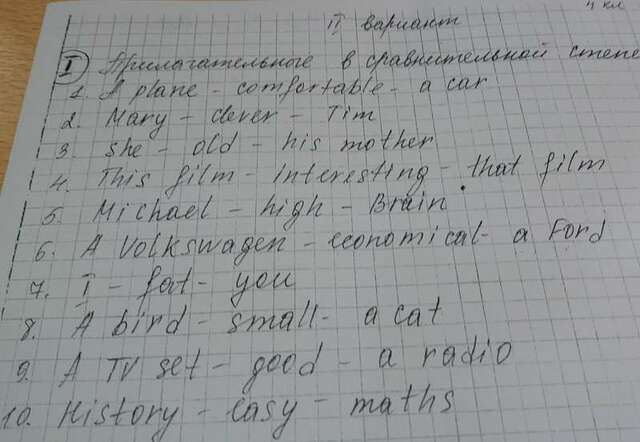 4 кл
II вариант
I Прилагательное в сравнительной степе
1. A plane - comfortable - a car
2. Mary - clever - Tim
3. she - old - his mother
4. This film - interesting - that film
5. Michael - high - Brain
6. A Volkswagen - economical - a Ford
7. I - fat - you
8. A bird - small - a cat
9. A TV set - good - a radio
10. History - easy - maths